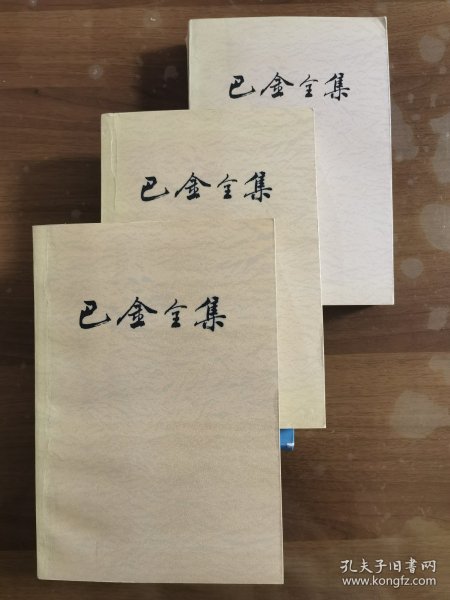 巴金全集
巴金全集
巴金全集
孔夫子旧书网
www.kongfz.com